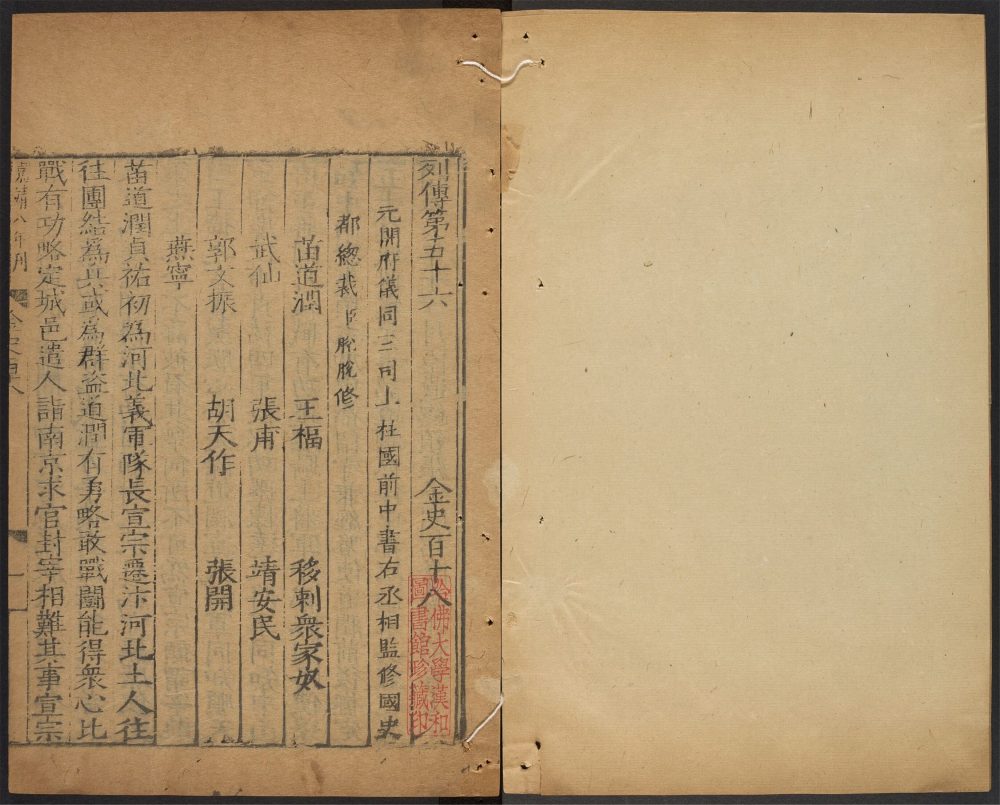 列傳第五十六 金史百十八
元開府儀同三司上柱國前中書右丞相監修國史
都總裁臣脫脫修
苗道潤 王福 移剌衆家奴
武仙 張甫 靖安民
郭文振 胡天作 張開
燕寧
苗道潤貞祐初為河北義軍隊長宣宗遷汴河北土人往
往團結為兵或為群盗道潤有勇略敢戰鬪能得衆心比
戰有功略定城邑遣人詣南京求官封宰相難其事宣宗
嘉靖八年刊
金史
一
哈佛大學漢和
圖書館珍藏印